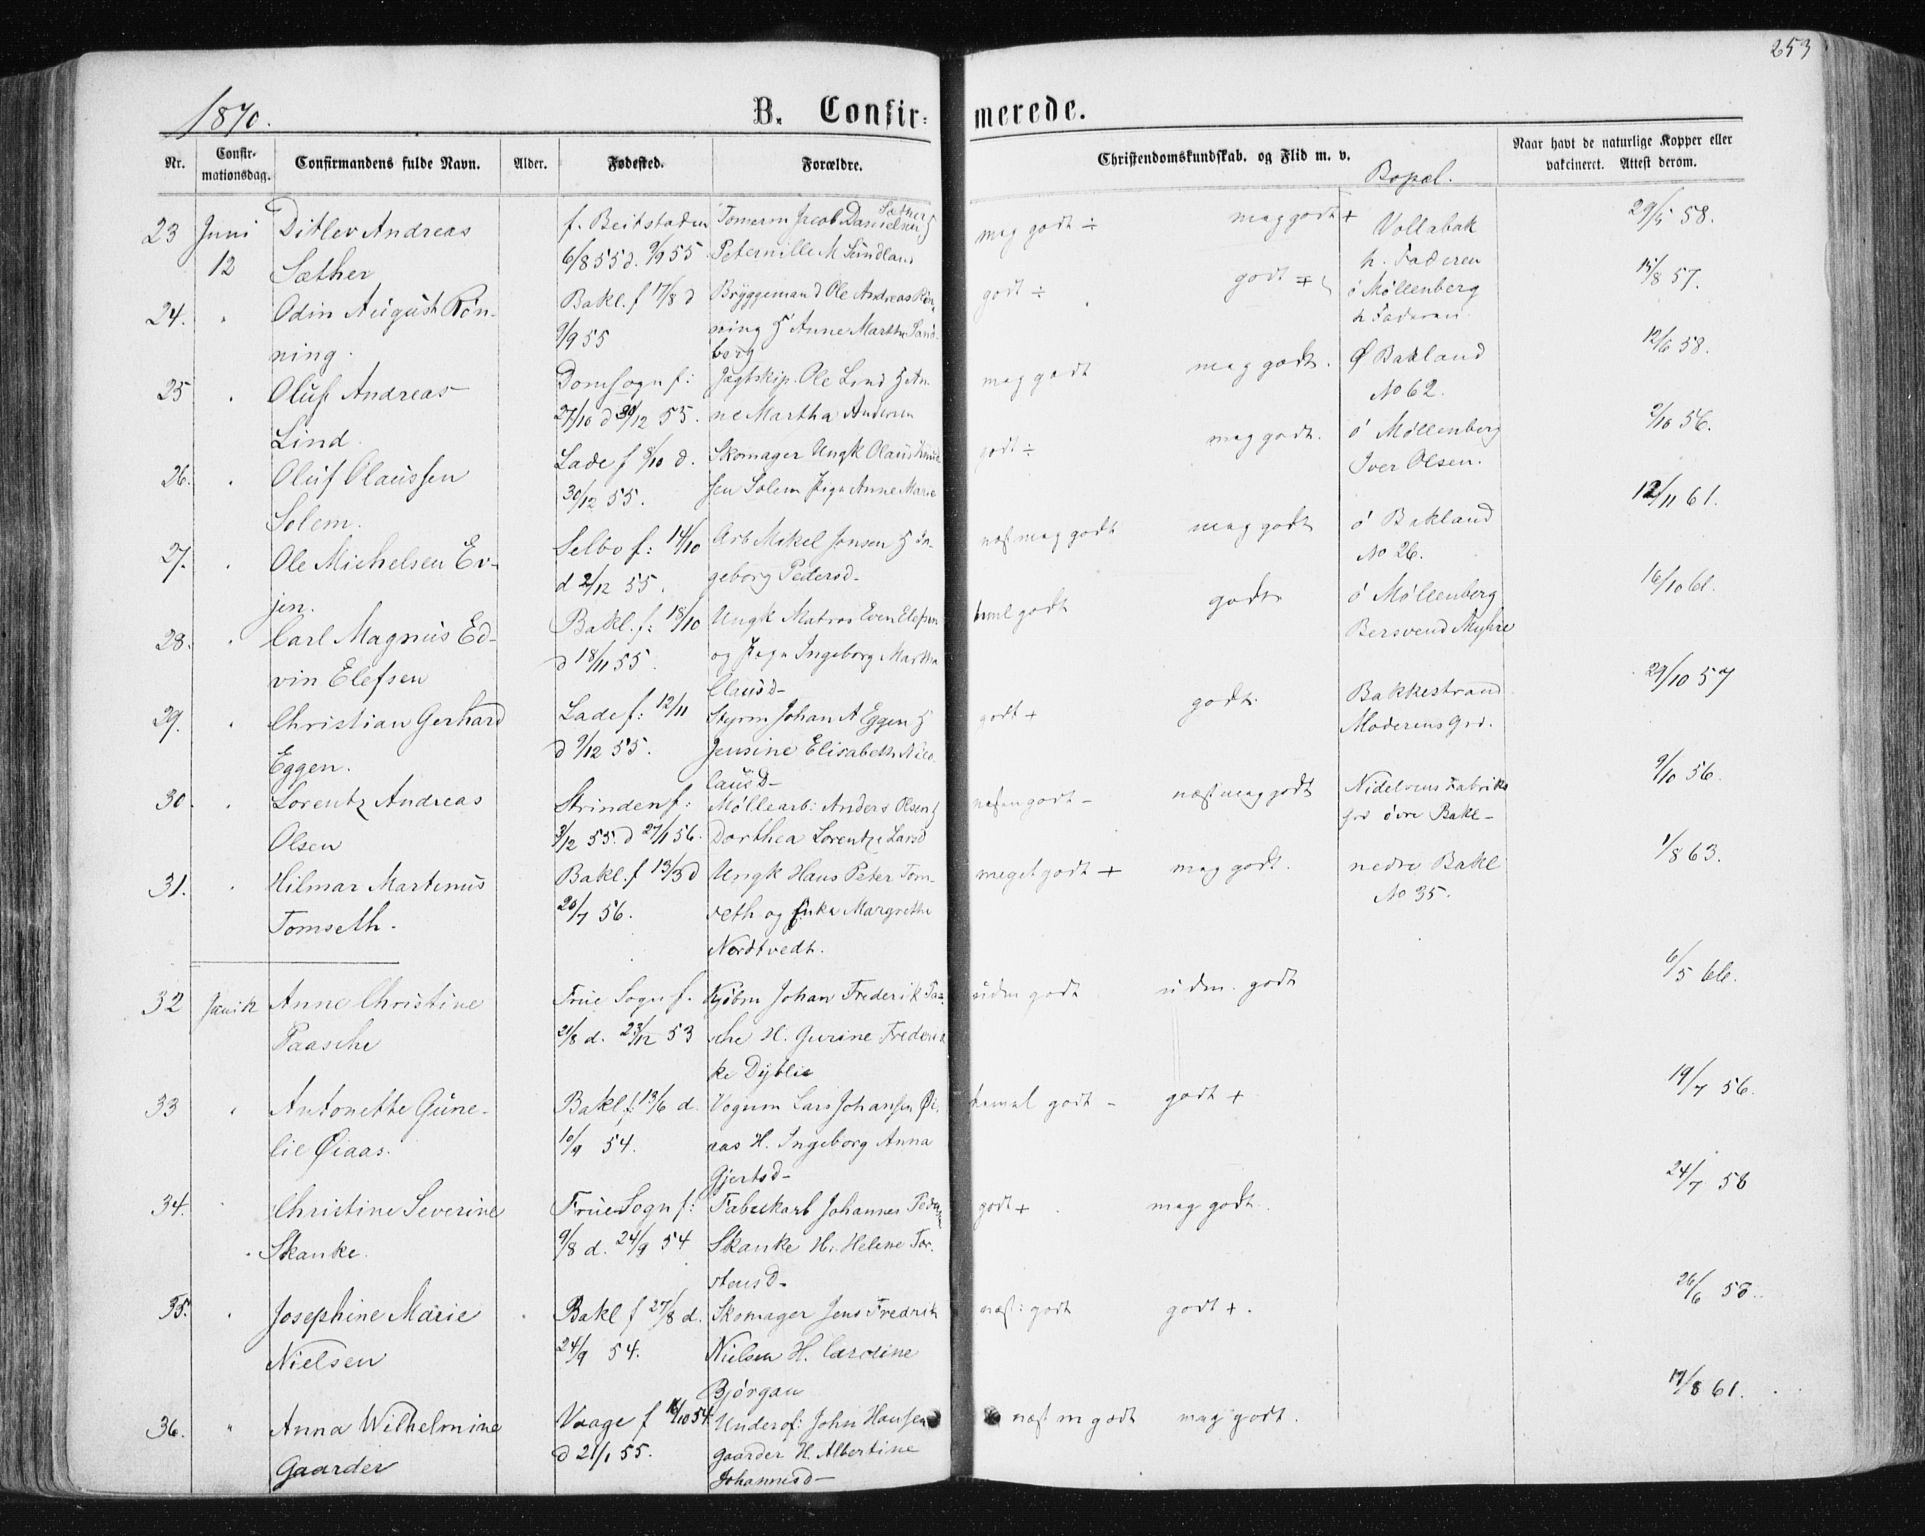 253
1870.
B. Confir- merede.
Nr.
Confir-
mationsdag.
Confirmandens fulde Navn.
Alder.
Fødested.
Forældre.
Christendomskundskab. og Flid m. v.
Bopæl.
Naar havt de naturlige Kopper eller
vakcineret. Attest derom.
23 Juni Ditlev Andreas f. Beitstaden Tømerm Jacob Danielsen Sæther H meg godt ÷ meg godt + Vollabak 29/5 58.
12 Sæther 6/8 55 d. 9/9 55 Peternille M Sundland h. Faderen
24. " Odin August Røn- Bakl. f 17/8 d Bryggemand Ole Andreas Røn- godt ÷ godt + ö Møllenberg 15/8 57.
ning. 9/9 55 ning H Anne Martha Sand- h Faderen
borg
25 " Oluf Andreas Domsogn f: Jagtskip. Ole Lind H An- meg godt meg godt. Ø Bakland 12/6 58.
Lind. 27/10 d 30/12 55. ne Martha Andersen No 62.
26. " Oluf Claussen Lade f 8/10 d. Skomager Ungk Olaus godt ÷ meg godt. ö Møllenberg 9/10 56.
Solem. 30/12 55. sen Solem Pige Anne Marie Iver Olsen.
27. " Ole Michelsen Ev- Selbo f: 14/10 Arb Mikel Jonsen H In- næst meg godt meg godt ö Bakland 12/11 61.
jen. d 2/12 55. geborg Pedersd- No 26.
28. " Carl Magnus Ed- Bakl. f: 18/10 Ungk Matros Even Elefsen teml godt godt ö Møllenberg 16/10 61.
vin Elefsen d 18/11 55. og Pige Ingeborg Martha Bersvend Myhre
Clausd-
29. " Christian Gerhard Lade f: 12/11 Styrm Johan A Eggen H godt + godt. Bakkestrand 29/10 57
Eggen. d 9/12 55. Jensine Elisabeth Nico- Moderens Grd.
lausd-
30 " Lorentz Andreas Strinden f: Møllearb: Anders Olsen H næst m godt - næst meg godt Nidelvens Fabriks 9/10 56.
Olsen 3/12 55. d 27/1 56. Dorthea Lorentze Larsd Grd øvre Bakl-
31. " Hilmar Martinus Bakl. f 13/3 d Ungk Hans Peter Tom- meget godt + meg godt. nedre Bakl 1/8 63.
Tomseth. 20/7 56. seth og Enke Margrethe No 35.
Nordtvedt.
32 Anne Christine Frue Sogn f. Kjøbm Johan Frederik Paa- udm godt udm. godt 6/5 66.
Paasche 21/8 d. 23/12 53 sche H. Gurine Frederik-
ke Dyblie
33 " Antonette Gune- Bakl f: 13/6 d. Vognm Lars Johansen Øi- temml godt - godt + 19/7 56.
lie Øiaas. 10/9 54. aas H. Ingeborg Anna
Gjertsd-
34. " Christine Severine Frue Sogn f: Fabrikarb Johannes Peder godt + meg godt. 24/7 56
Skanke. 9/8 d. 24/9 54 Skanke H. Helene Tor-
stensd-
35. " Josephine Marie Bakl f 27/8 d. Skomager Jens Fredrik næst: godt godt +. 26/6 58.
Nielsen 24/9 54. Nielsen H. Caroline
Bjørgan
36. " Anna Wilhelmine Vaage f 16/10 54. Underof: John Hansen næst m godt meg godt. 17/8 61.
Gaarder d 21/1 55. Gaarder H. Albertine
Johannesd-